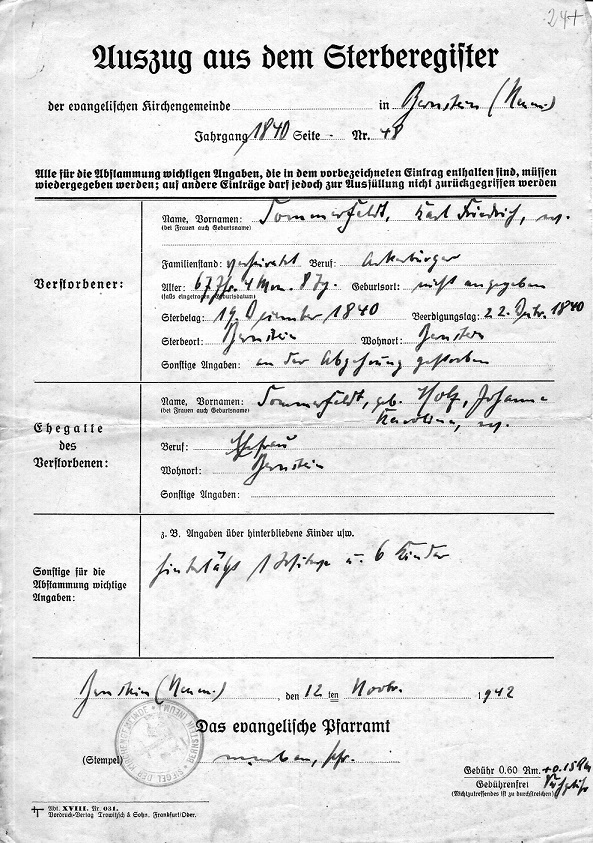 247
Auszug aus dem Sterberegister
der evangelischen Kirchengemeinde in Bernstein (Neum.)
Jahrgang 1840 Seite - Nr. 48
Alle für die Abstammung wichtigen Angaben, die in dem vorbezeichneten Eintrag enthalten sind, müssen
wiedergegeben werden; auf andere Einträge darf jedoch zur Ausfüllung nicht zurückgegriffen werden
Verstorbener:
Name, Vornamen: Sommerfeldt, Karl Friedrich, ev.
(bei Frauen auch Geburtsname)
Familienstand: verheiratet Beruf: Ackerbürger
Alter: 67 Jhr. 4 Mon. 8 Tg. Geburtsort: nicht angegeben
(falls eingetragen Geburtsdatum)
Sterbetag: 19. Dezember 1840 Beerdigungstag: 22. Dezbr. 1840
Sterbeort: Bernstein Wohnort: Bernstein
Sonstige Angaben: an der Abzehrung gestorben
Ehegatte
des
Verstorbenen:
Name, Vornamen: Sommerfeldt, geb. Holz, Johanne
(bei Frauen auch Geburtsname)
Karoline, ev.
Beruf: Ehefrau
Wohnort: Bernstein
Sonstige Angaben:
Sonstige für die
Abstammung wichtige
Angaben:
z. B. Angaben über hinterbliebene Kinder usw.
hinterläßt 1 Witwe u. 6 Kinder
Bernstein (Neum.), den 12 ten Novbr. 1942
Das evangelische Pfarramt
(Stempel)
Gebühr 0.60 Rm. + 0.15 Rm
Gebührenfrei
(Nichtzutreffendes ist zu durchstreichen)
Abt. XVIII. Nr. 031.
Vordruck-Verlag Trowitzsch & Sohn. Frankfurt/Oder.